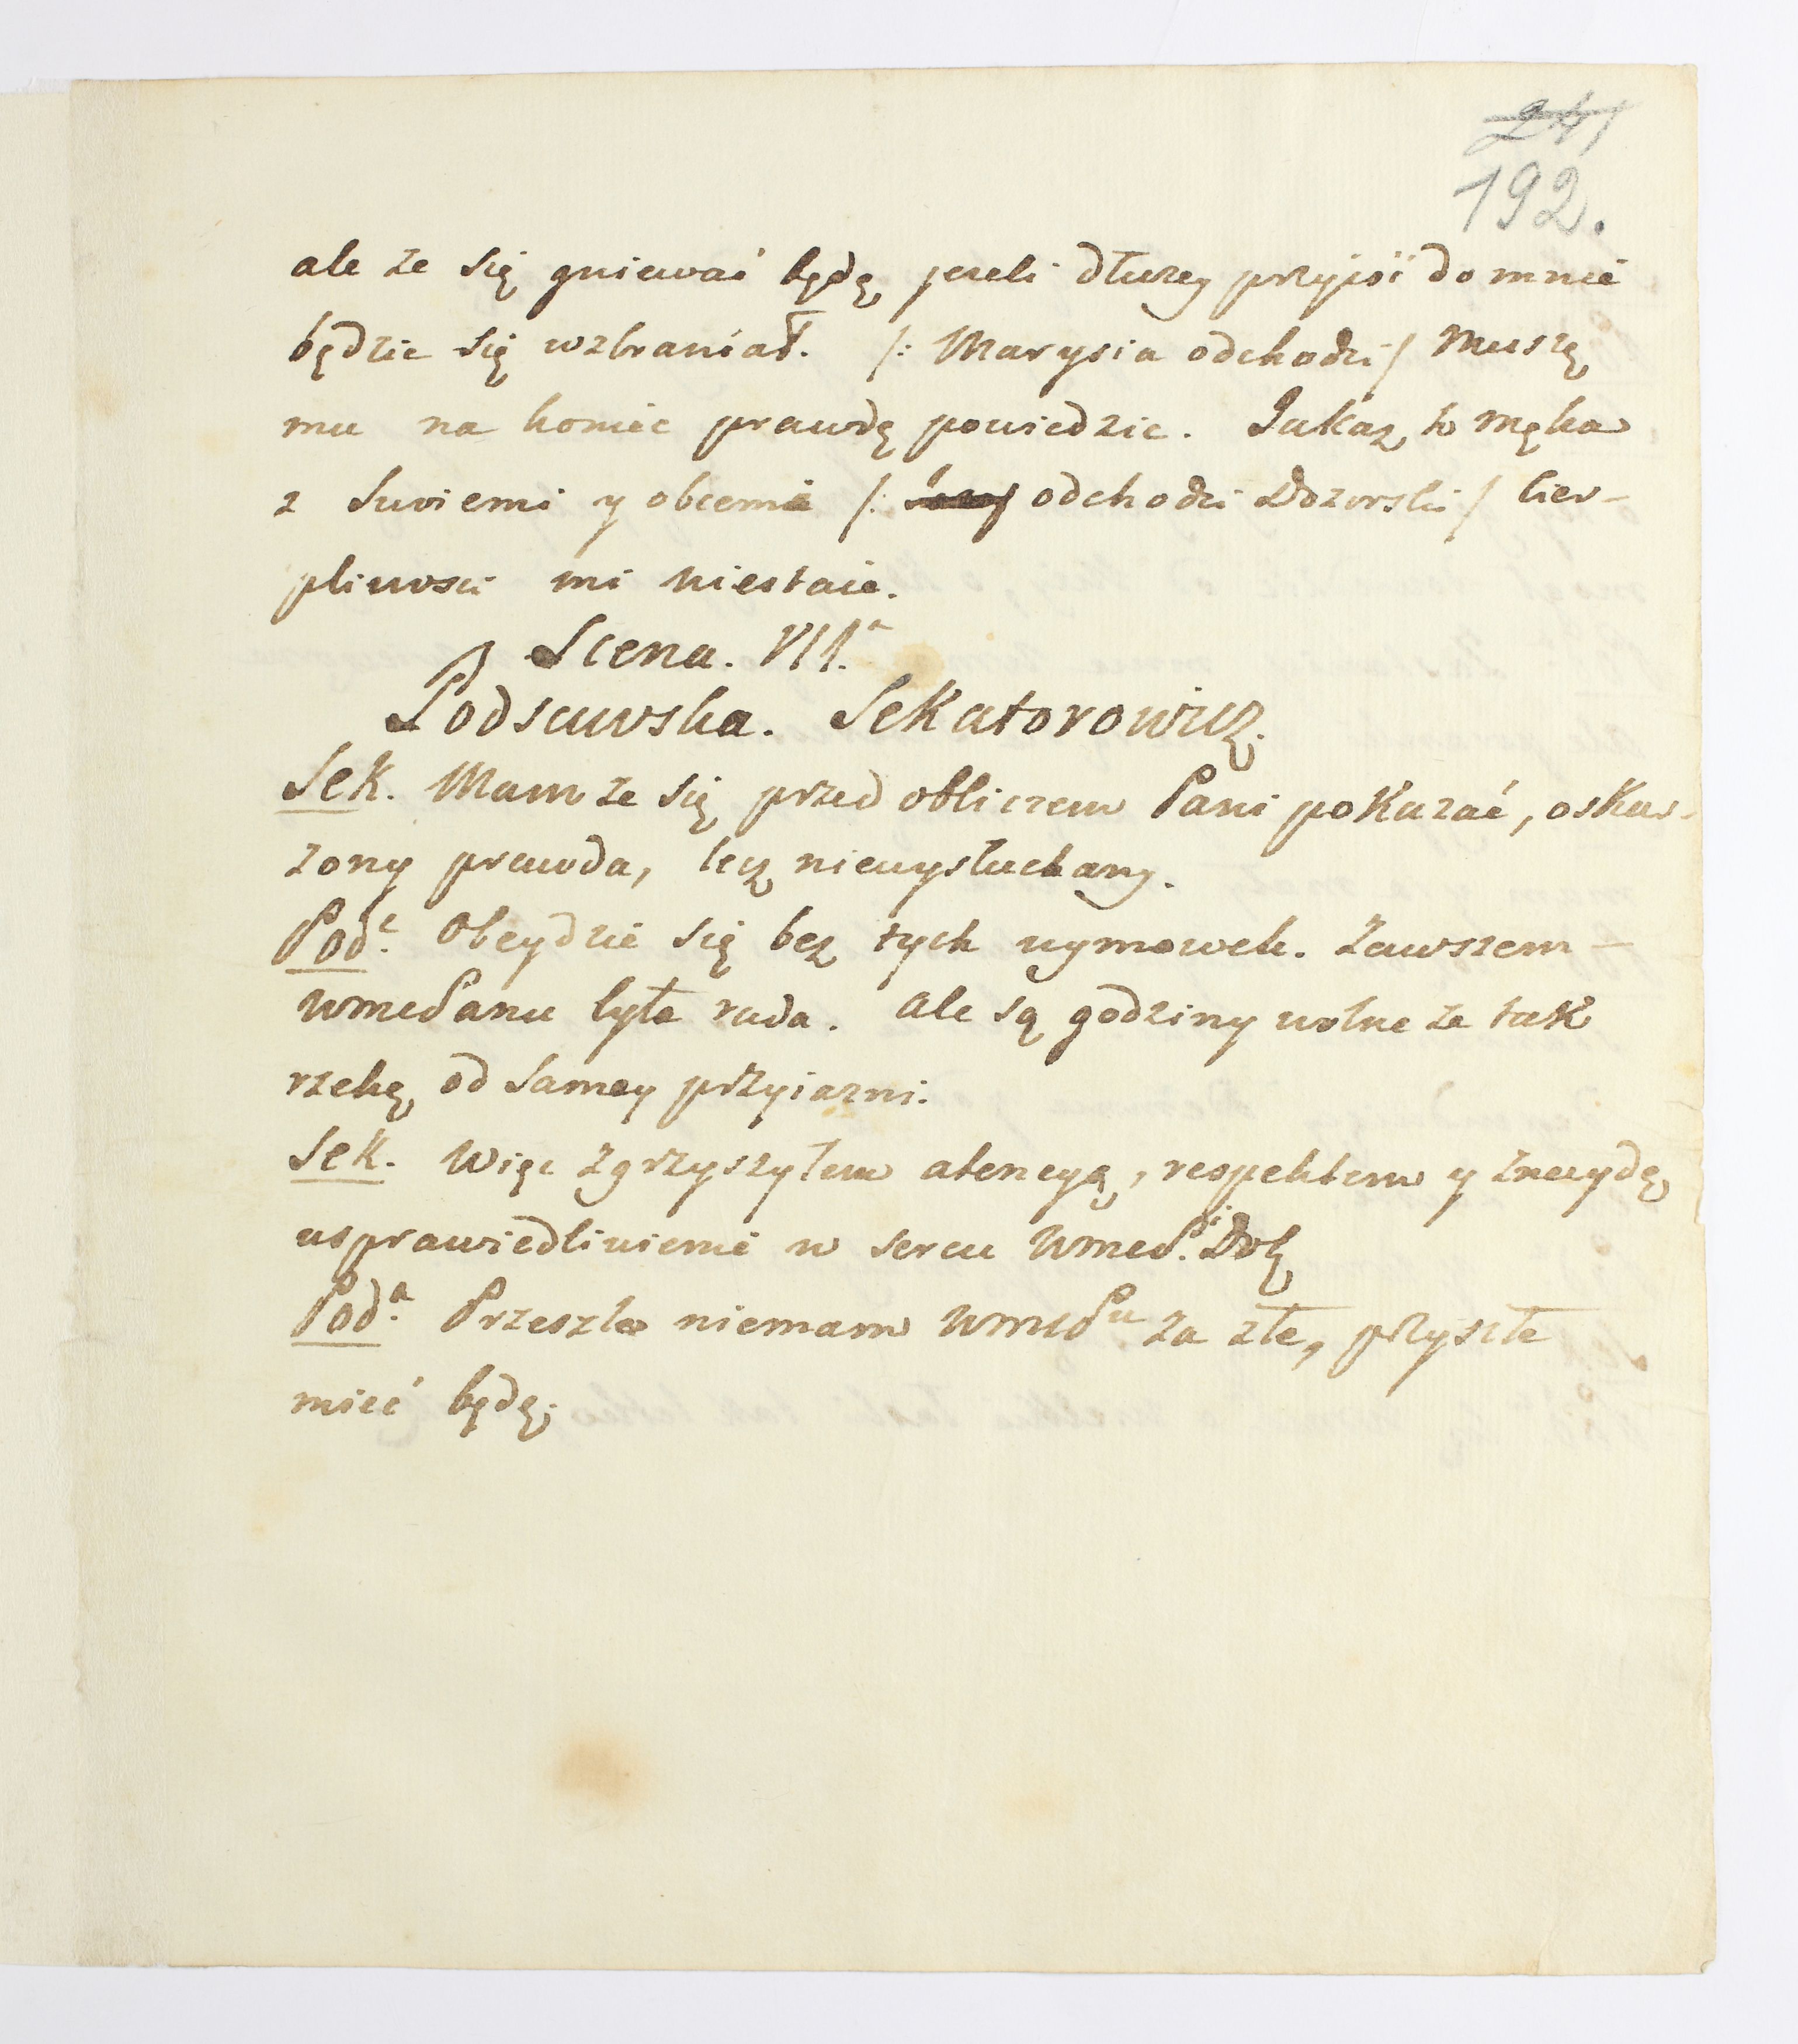 241
192.
ale ze się gniewać będę, jezeli dłuzey przyjść do mnie
będzie się wzbraniał. /: Marysia odchodzi / Muszę
mu na koniec prawdę powiedzic. Jakaz to męka
z swiemi y obcemi /: odchodzi Dozorski / Cier-
pliwosci mi niestaie.
Scena. VII.a
Podsęwska. Sekatorowicz.
Sek. Mam ze się przed obliczem Pani pokazać, oskar-
zony prawda, lecz niewysłuchany.
Pod. Obeydzie się bez tych wymowek. Zawszem
WmcPanu była rada. ale są godziny wolne ze tak
rzekę od samey przyiazni.
Sek. Więc zgrzyszyłem atencyą, respektem y znaydę
usprawiedliwienie w sercu WmcP. Dob
Pod.a Przeszłe niemam WmcPu za złe, przyszłe
mieć będę.